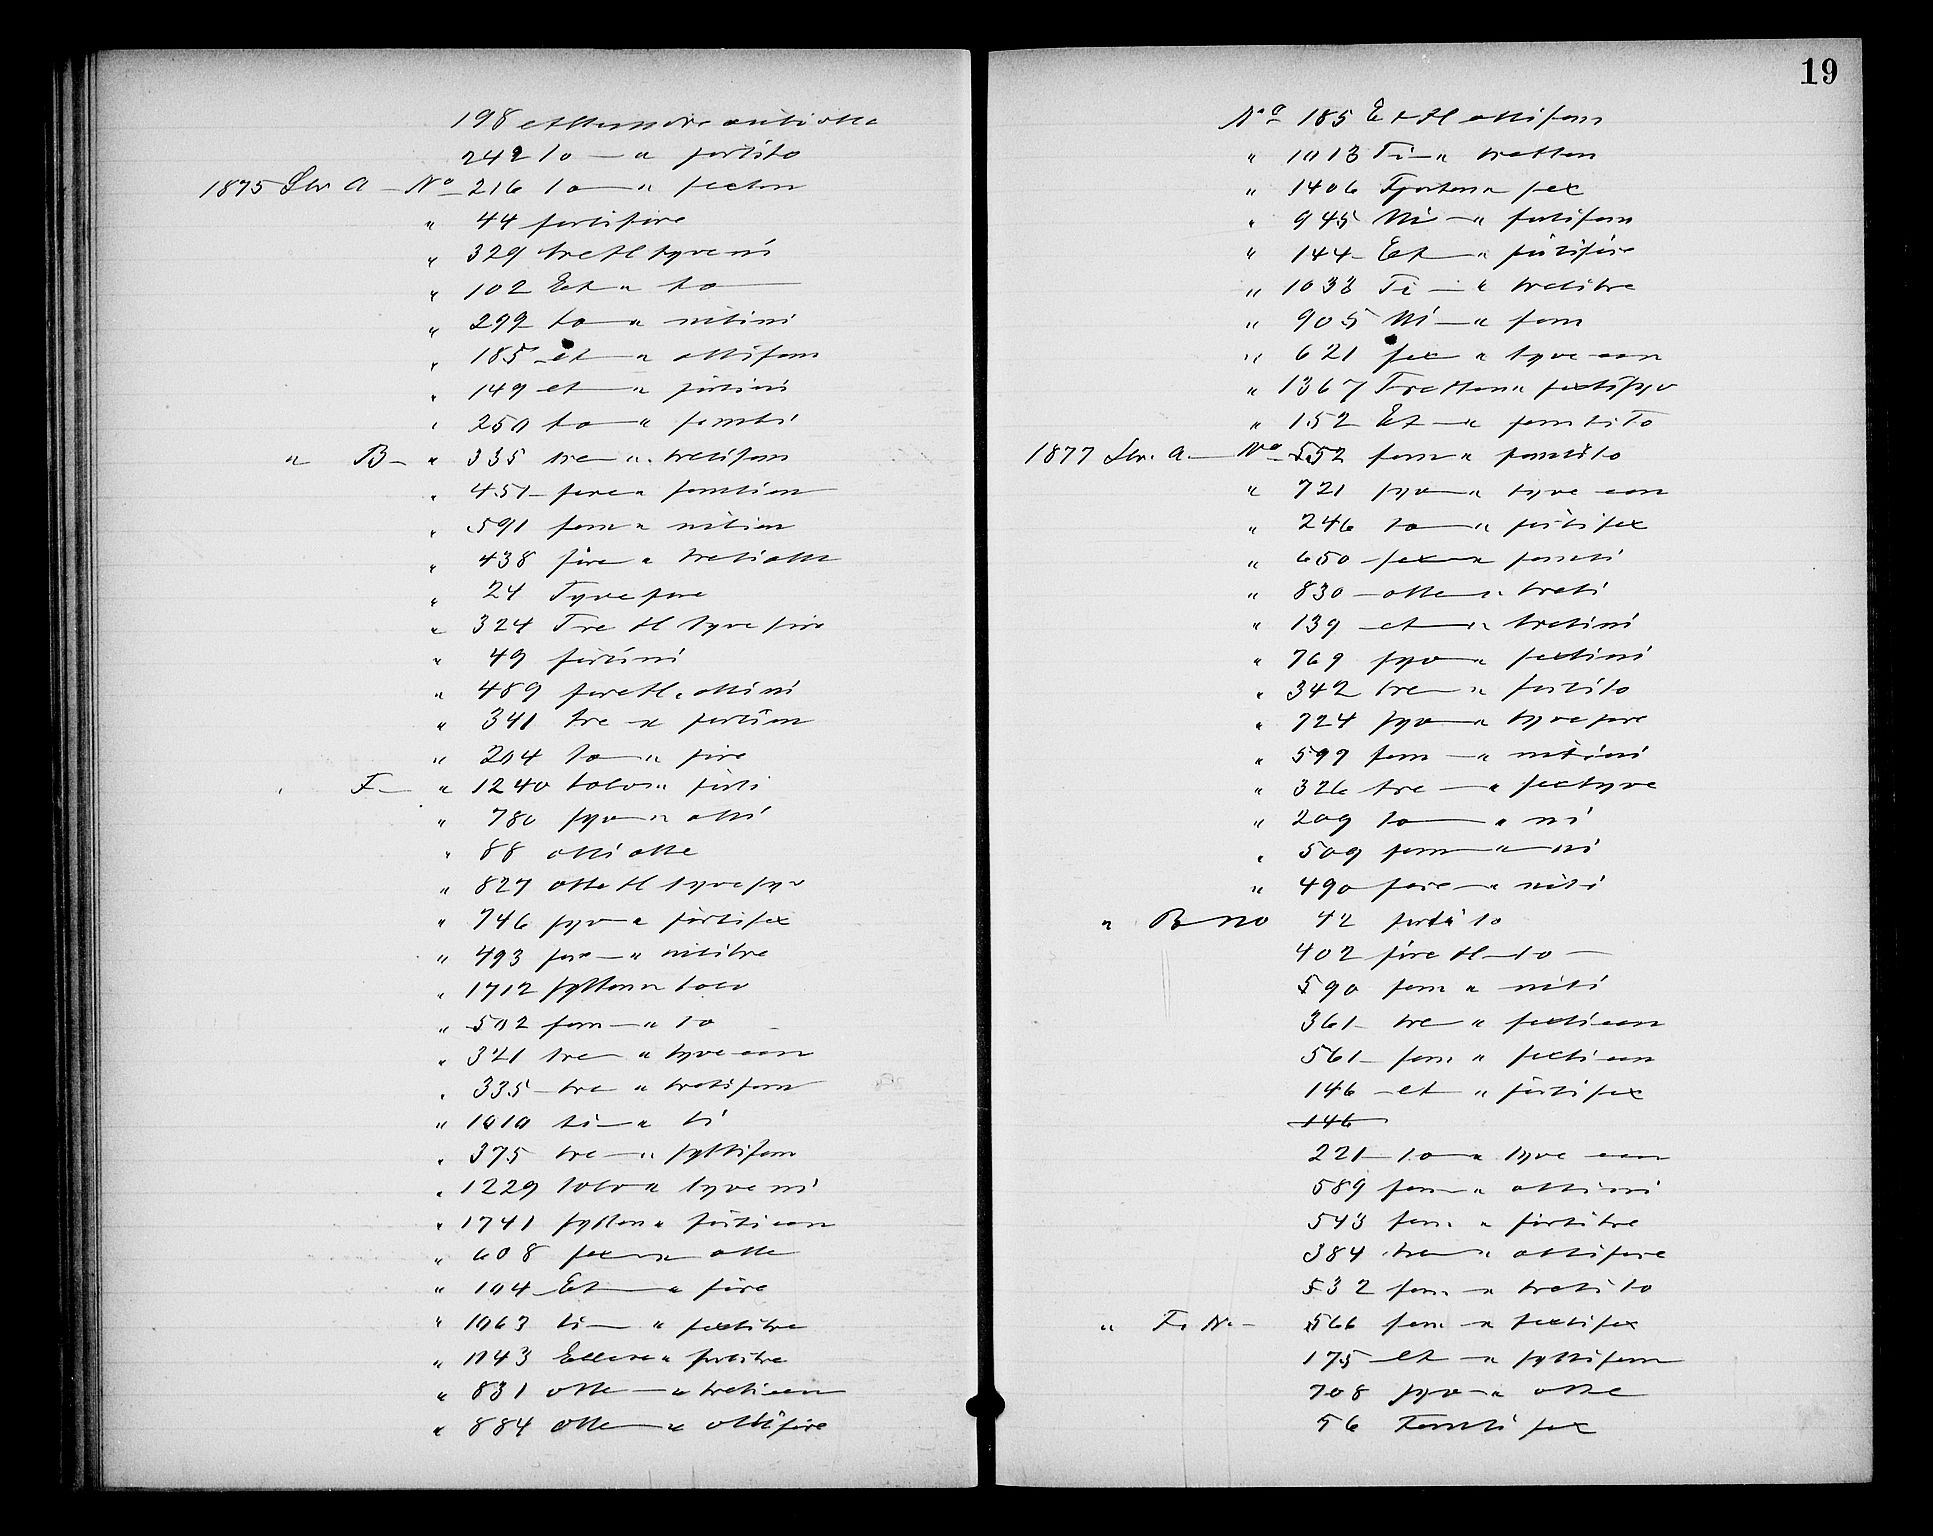 198 ethundre nitiotte
242 to — " fortito
1875 Ltr A — No 216 to — " sexten
" 44 fortifire
" 329 tre H tyveni
" 102 Et " to —
" 299 to — " nitini
" 185 et — " ottifem
" 149 et — " førtini
" 250 to — " femti
" B — " 335 tre " tretifem
" 451 — fire " femtien
" 591 fem " nitien
" 438 fire " tretiotte
" 24 Tyvefire
" 324 Tre H tyvefire
" 49 førtini
" 489 fire H. ottini
" 341 tre — " førtien
" 204 to — " fire
F — " 1240 tolv " førti
" 780 syv — " otti
" 88 ottiotte
" 827 otte H tyvesyv
" 746 syv — " førtisex
" 493 fire — " nititre
" 1712 sytten " tolv
" 502 fem — " to
" 321 tre — " tyve een
" 335 — tre " tretifem
" 1010 ti — " ti
" 375 tre — " syttifem
" 1229 tolv " tyveni
" 1741 sytten " førti een
" 608 sex — " otte
" 104 Et — " fire
" 1063 ti — " sextitre
" 1143 Elleve " førtitre
" 831 otte — " treti een
" 884 otte — " ottifire
19
No 185 Et H ottifem
" 1013 Ti — " tretten
" 1406 Fjorten " sex
" 945 Ni — " førtifem
" 144 — Et — " førtifire
" 1033 Ti — " tretitre
" 905 Ni — " fem
" 621 sex " tyve een
" 1367 Tretten " sextisyv
" 152 Et — " femtiTo
1877 Ltr. A — No 552 fem " femtito
" 721 syv — " tyve een
" 246 to — " førtisex
" 650 sex — " femti
" 830 — otte " treti
" 139 — et — " tretini
" 769 syv — " sextini
" 342 tre — " førtito
" 724 syv — " tyvefire
" 599 fem — " nitini
" 326 tre — " sextyve
" 209 to — " ni
" 509 fem — " — ni
" 490 fire — " niti
" B no 42 førtito
402 fire H — to —
590 fem " niti
361 — tre " sexti een
561 — fem " sexti een
146 — et " førtisex
146
221 — to — " tyve een
589 fem — " ottini
543 fem. " førtitre
384 tre — " ottifire
532 fem. — " treti to
" F. N. — 566 fem. — " sextisex
175 — et — " syttifem
708 syv — " otte
56 Femti sex